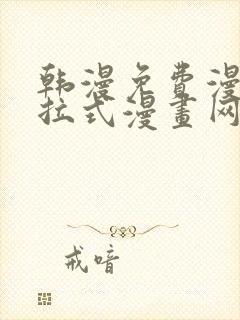 韩漫免费漫
拉式漫畫网
戒喑